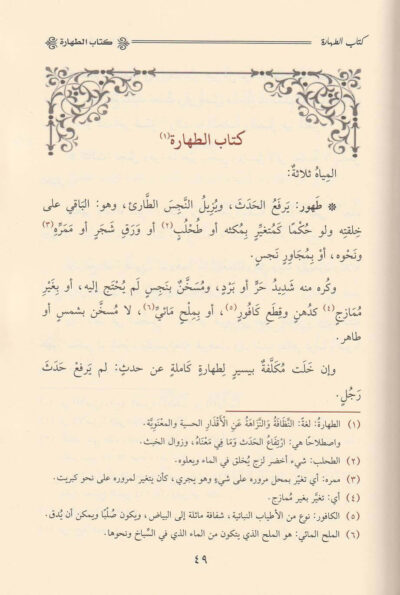 كتاب الطهارة
كتاب الطهارة
كتاب الطهارة(١)
المِياهُ ثلاثةٌ:
* طَهور: يَرفَعُ الحَدَثَ، ويُزِيلُ النَّجِسَ الطَّارئَ، وهو: البَاقي على
خِلقتِهِ ولو حُكْمًا كَمُتغيِّرٍ بِمُكثه أو طُحْلُبٍ(٢) أو وَرَقِ شَجَرٍ أو مَمَرِّهِ(٣)
ونَحوِه، أوْ بِمُجَاوِرٍ نَجسٍ.
وكُره منه شَدِيدُ حَرٍّ أو بَرْدٍ، ومُسَخَّنٌ بنَجِسٍ لَم يُحْتَج إليه، أو بِغَيْرِ
مُمَازجٍ(٤) كدُهنٍ وقِطَعِ كَافُورٍ(٥)، أو بِمِلْحٍ مَائيٍّ(٦)، لا مُسخَّن بشمسٍ أو
طاهر.
وإن خَلَت مُكَلَّفةٌ بيسيرٍ لِطهارةٍ كَاملةٍ عن حدثٍ: لم يَرفعْ حَدَثَ
رَجُلٍ.
(١) الطهارةُ: لغةً: النَّظَافَةُ وَالنَّزَاهَةُ عَنِ الْأَقْذَارِ الحسية والمعْنَوِيَّة.
واصطلاحًا هي: ارْتِفَاعُ الحَدَث وَمَا فِي مَعْنَاهُ، وزوال الخبث.
(٢) الطحلب: شيء أخضر لزج يُخلق في الماء ويعلوه.
(٣) ممره: أي تغيّر بمحل مروره على شيءٍ وهو يجري، كأن يتغير لمروره على نحو كبريت.
(٤) أي: تغيَّر بغير مُمازج.
(٥) الكافور: نوع من الأطياب النباتية، شفافة مائلة إلى البياض، ويكون صُلبًا ويمكن أن يُدق.
(٦) الملح المائي: هو الملح الذي يتكون من الماء الذي في السِّباخ ونحوها.
٤٩